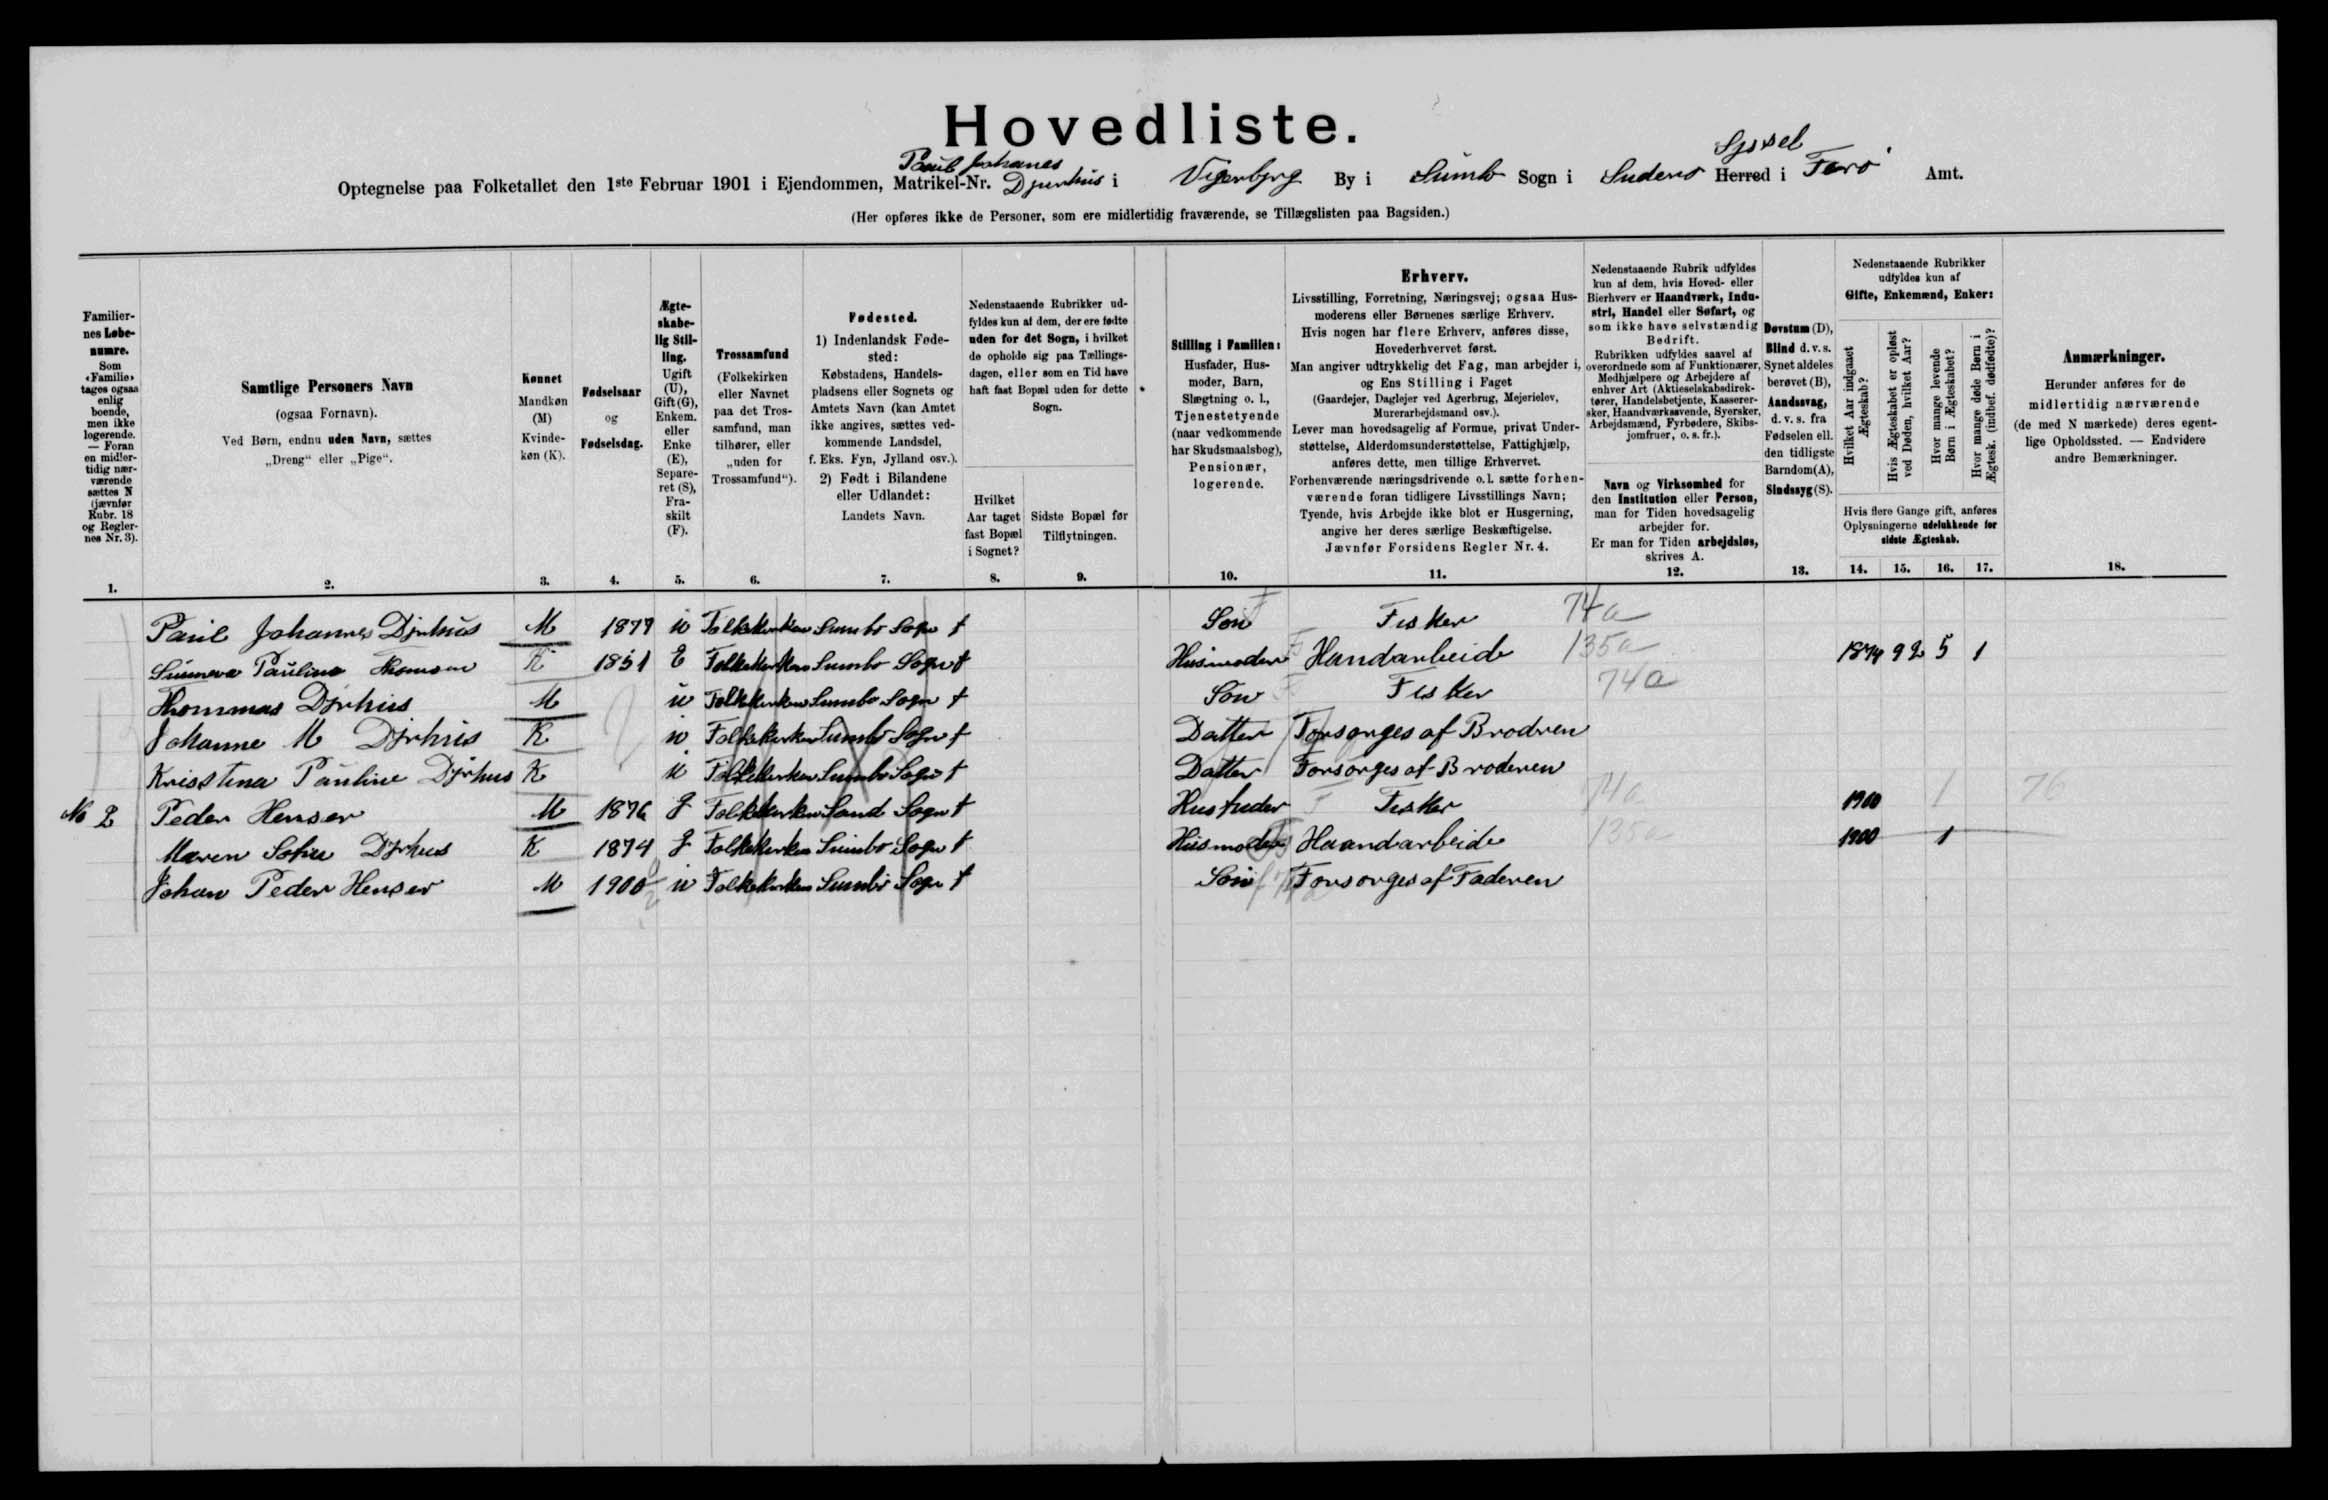 Hovedliste.
Paul Johanes Syssel
Optegnelse paa Folketallet den 1ste Februar 1901 i Ejendommen, Matrikel-Nr. Djurhus i Vigerbjrg By i Sumbo Sogn i Suderø Herred i Færø Amt.
(Her opføres ikke de Personer, som ere midlertidig fraværende, se Tillægslisten paa Bagsiden.)
Familiernes Løbenumre.
Som «Familie» tages ogsaa enlig boende, men ikke logerende. — Foran en midlertidig nærværende sættes N (jævnfør Rubr. 18 og Reglernes Nr. 3).
1.
Samtlige Personers Navn
(ogsaa Fornavn).
Ved Børn, endnu uden Navn, sættes
„Dreng“ eller „Pige“.
2.
Kønnet
Mandkøn (M)
Kvindekøn (K).
3.
Fødselsaar
og
Fødselsdag.
4.
Ægteskabelig Stilling.
Ugift (U), Gift (G), Enkem. eller Enke (E), Separeret (S), Fraskilt (F).
5.
Trossamfund
(Folkekirken eller Navnet paa det Trossamfund, man tilhører, eller „uden for Trossamfund“).
6.
Fødested.
1) Indenlandsk Fødested:
Købstadens, Handelspladsens eller Sognets og Amtets Navn (kan Amtet ikke angives, sættes vedkommende Landsdel, f. Eks. Fyn, Jylland osv.).
2) Født i Bilandene eller Udlandet:
Landets Navn.
7.
Nedenstaaende Rubrikker udfyldes kun af dem, der ere fødte uden for det Sogn, i hvilket de opholde sig paa Tællingsdagen, eller som en Tid have haft fast Bopæl uden for dette Sogn.
Hvilket Aar taget fast Bopæl i Sognet?
8.
Sidste Bopæl før Tilflytningen.
9.
Stilling i Familien:
Husfader, Husmoder, Barn, Slægtning o. l., Tjenestetyende (naar vedkommende har Skudsmaalsbog), Pensionær, logerende.
10.
Erhverv.
Livsstilling, Forretning, Næringsvej; ogsaa Husmoderens eller Børnenes særlige Erhverv.
Hvis nogen har flere Erhverv, anføres disse, Hovederhvervet først.
Man angiver udtrykkelig det Fag, man arbejder i, og Ens Stilling i Faget
(Gaardejer, Daglejer ved Agerbrug, Mejerielev, Murerarbejdsmand osv.).
Lever man hovedsagelig af Formue, privat Understøttelse, Alderdomsunderstøttelse, Fattighjælp, anføres dette, men tillige Erhvervet.
Forhenværende næringsdrivende o. l. sætte forhenværende foran tidligere Livsstillings Navn;
Tyende, hvis Arbejde ikke blot er Husgerning, angive her deres særlige Beskæftigelse.
Jævnfør Forsidens Regler Nr. 4.
11.
Nedenstaaende Rubrik udfyldes kun af dem, hvis Hoved- eller Bierhverv er Haandværk, Industri, Handel eller Søfart, og som ikke have selvstændig Bedrift.
Rubrikken udfyldes saavel af overordnede som af Funktionærer, Medhjælpere og Arbejdere af enhver Art (Aktieselskabsdirektører, Handelsbetjente, Kasserersker, Haandværkssvende, Syersker, Arbejdsmænd, Fyrbødere, Skibsjomfruer, o. s. fr.).
Navn og Virksomhed for den Institution eller Person, man for Tiden hovedsagelig arbejder for.
Er man for Tiden arbejdsløs, skrives A.
12.
Døvstum (D), Blind d. v. s. Synet aldeles berøvet (B), Aandssvag, d. v. s. fra Fødselen ell. den tidligste Barndom (A), Sindssyg (S).
13.
Nedenstaaende Rubrikker udfyldes kun af
Gifte, Enkemænd, Enker:
Hvilket Aar indgaaet Ægteskab?
Hvis Ægteskabet er opløst ved Døden, hvilket Aar?
Hvor mange levende Børn i Ægteskabet?
Hvor mange døde Børn i Ægtesk. (indbef. dødfødte)?
Hvis flere Gange gift, anføres Oplysningerne udelukkende for sidste Ægteskab.
14. 15. 16. 17.
Anmærkninger.
Herunder anføres for de midlertidig nærværende (de med N mærkede) deres egentlige Opholdssted. — Endvidere andre Bemærkninger.
18.
Paul Johannes Djrhus M 1879 u Folkekirken Sumbo Sogn † Søn F Fisker 74a
Sunneva Pauline Thomsen K 1851 E Folkekirken Sumbo Sogn † Husmoder F Handarbeide 135a 1874 92 5 1
Thommas Djrhus M u Folkekirken Sumbo Sogn † Søn F Fisker 74a
Johanne M Djrhus K u Folkekirken Sumbo Sogn † Datter Forsørges af Brodren
Krisstina Pauline Djrhus K u Folkekirken Sumbo Sogn † Datter Forsørges af Broderen
No 2 Peder Henser M 1876 g Folkekirken Sand Sogn † Husfader F Fisker 74a 1900 1 76
Maren Sofie Djrhus K 1874 g Folkekirken Sumbo Sogn † Husmoder Haandarbeide 135a 1900 1
Johan Peder Henser M 1900 u Folkekirken Sumbo Sogn † Søn Forsorges af Faderen